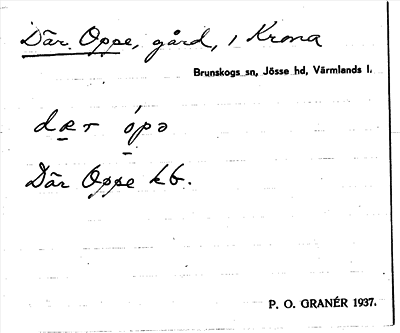 Där Oppe, gård, i Krona
Brunskogs sn, Jösse hd, Värmlands l.
dær ópə
Där Oppe kb.
P. O. GRANÉR 1937.